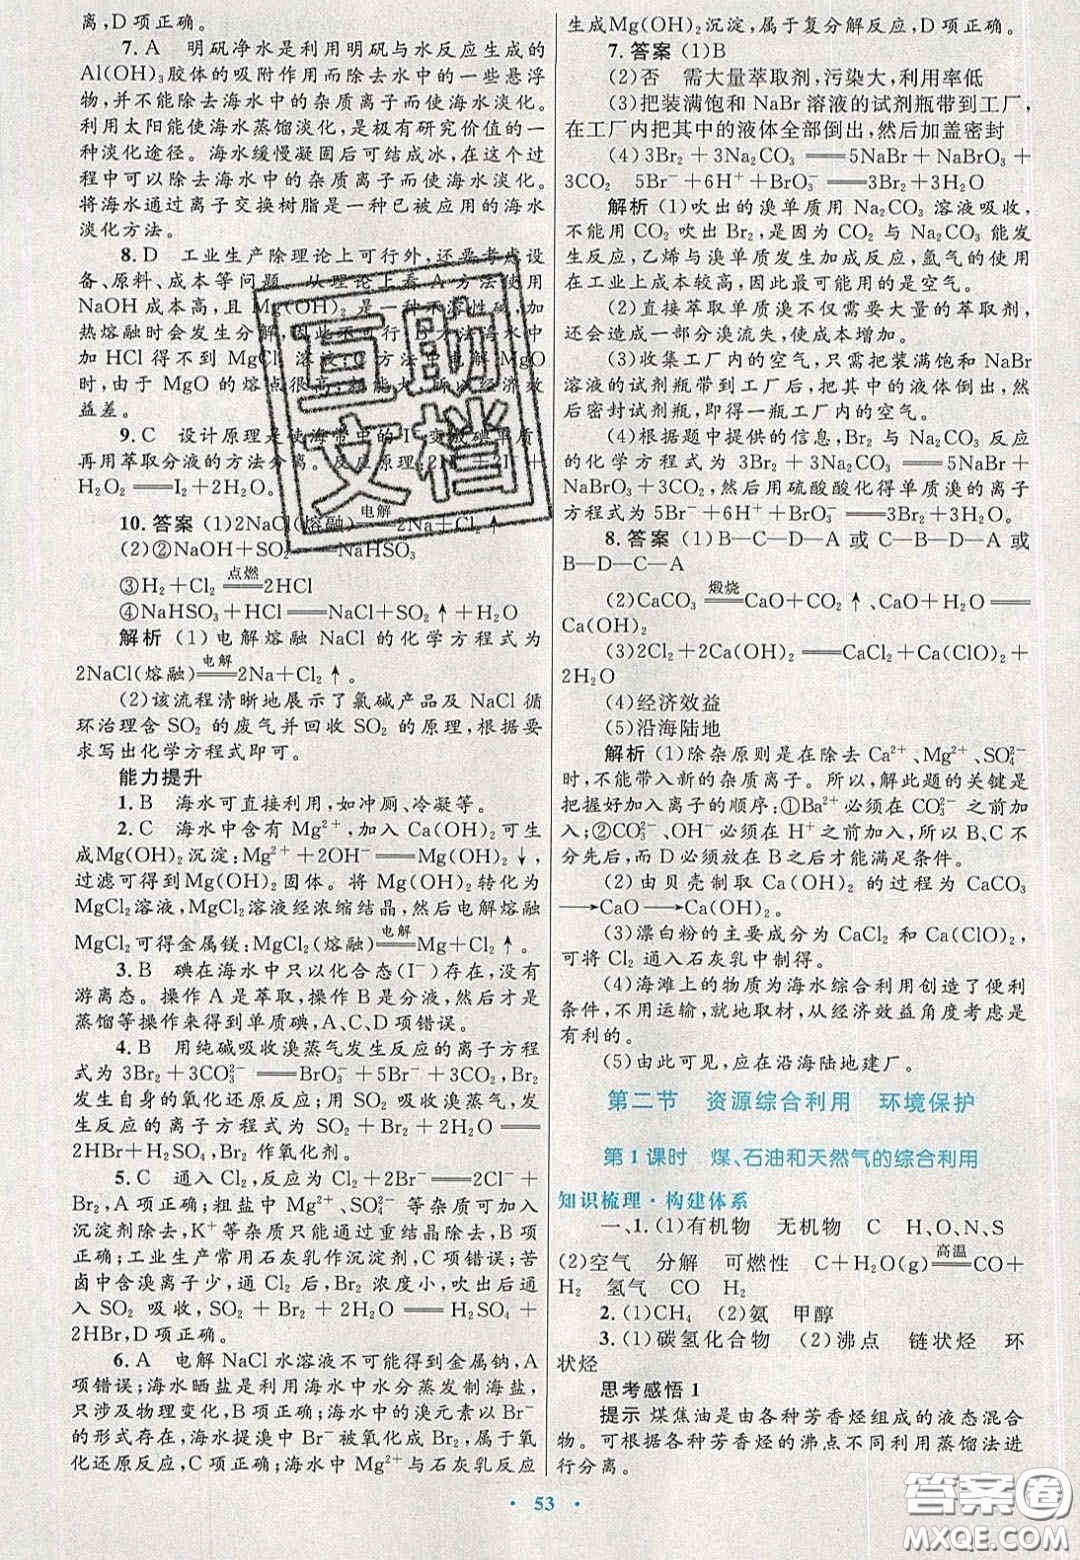 离,D项正确。
7. A 明矾净水是利用明矾与水反应生成的
Al(OH)₃胶体的吸附作用而除去水中的一些悬浮
物,并不能除去海水中的杂质离子而使海水淡化。
利用太阳能使海水蒸馏淡化,是极有研究价值的一
种淡化途径。海水缓慢凝固后可结成冰,在这个过
程中可以除去海水中的杂质离子而使海水淡化。
将海水通过离子交换树脂是一种已被应用的海水
淡化方法。
8. D 工业生产除理论上可行外,还要考虑设
备、原料、成本等问题。从理论上看A方法使用
NaOH成本高,且Mg(OH)₂是一种
热熔融时会发生分解
加HCl得不到MgCl₂溶液
时,由于MgO的熔点很高
益差。
9. C 设计原理是使海带中的I⁻变成碘单质
再用萃取分液的方法分离。
H₂O₂══I₂+2H₂O。
10. 答案 (1)2NaCl(熔融)电解══2Na+Cl₂↑
(2)②NaOH+SO₂══NaHSO₃
③H₂+Cl₂点燃══2HCl
④NaHSO₃+HCl══NaCl+SO₂↑+H₂O
解析 (1)电解熔融NaCl的化学方程式为
2NaCl(熔融)电解══2Na+Cl₂↑。
(2)该流程清晰地展示了氯碱产品及NaCl循
环治理含SO₂的废气并回收SO₂的原理,根据要
求写出化学方程式即可。
能力提升
1. B 海水可直接利用,如冲厕、冷凝等。
2. C 海水中含有Mg²⁺,加入Ca(OH)₂可生
成Mg(OH)₂沉淀:Mg²⁺+2OH⁻══Mg(OH)₂↓,
过滤可得到Mg(OH)₂固体。将Mg(OH)₂转化为
MgCl₂溶液,MgCl₂溶液经浓缩结晶,然后电解熔融
MgCl₂可得金属镁:MgCl₂(熔融)电解══Mg+Cl₂↑。
3. B 碘在海水中只以化合态(I⁻)存在,没有
游离态。操作A是萃取,操作B是分液,然后才是
蒸馏等操作来得到单质碘,A、C、D项错误。
4. B 用纯碱吸收溴蒸气发生反应的离子方程
式为3Br₂+3CO₃²⁻══BrO₃⁻+5Br⁻+3CO₂,溴
发生自身的氧化还原反应;用SO₂吸收溴蒸气,发
生反应的离子方程式为SO₂+Br₂+2H₂O══
2HBr+H₂SO₄,Br₂作氧化剂。
5. C 通入Cl₂,反应为Cl₂+2Br⁻══2Cl⁻+
Br₂,A项正确;粗盐中Mg²⁺、SO₄²⁻可通过加入
沉淀剂除去,K⁺等杂质只能通过重结晶除去,B项
正确;工业生产常用石灰乳作沉淀剂,C项错误;苦
卤中含溴离子少,通Cl₂后,Br₂浓度小,吹出后通
入SO₂吸收,SO₂+Br₂+2H₂O══H₂SO₄+
2HBr,D项正确。
6. A 电解NaCl水溶液不可能得到金属钠,A
项错误;海水晒盐是利用海水中水分蒸发制海盐,
只涉及物理变化,B项正确;海水中的溴元素以Br⁻
的形式存在,海水提溴中Br⁻被氧化成Br₂,属于氧
化还原反应,C项正确;海水中Mg²⁺与石灰乳反应
生成Mg(OH)₂沉淀,属于复分解反应,D项正确。
7. 答案 (1)B
(2)否 需大量萃取剂,污染大,利用率低
(3)把装满饱和NaBr溶液的试剂瓶带到工厂,
在工厂内把其中的液体全部倒出,然后加盖密封
(4)3Br₂+3Na₂CO₃══5NaBr+NaBrO₃+
3CO₂ 5Br⁻+6H⁺+BrO₃⁻══3Br₂+3H₂O
解析 (1)吹出的溴单质用Na₂CO₃溶液吸收,
不能用CO₂吹出Br₂,是因为CO₂与Na₂CO₃能发
生反应,乙烯与溴单质发生加成反应,氩气的使用
在工业上成本较高,因此最可能用的是空气。
(2)直接萃取单质溴不仅需要大量的萃取剂,
还会造成一部分溴流失,使成本增加。
(3)收集工厂内的空气,只需把装满饱和NaBr
溶液的试剂瓶带到工厂后,把其中的液体倒出,然
后密封试剂瓶,即得一瓶工厂内的空气。
(4)根据题中提供的信息,Br₂与Na₂CO₃反应
的化学方程式为3Br₂+3Na₂CO₃══5NaBr+
NaBrO₃+3CO₂,然后用硫酸酸化得单质溴的离子
方程式为5Br⁻+6H⁺+BrO₃⁻══3Br₂+3H₂O。
8. 答案 (1)B—C—D—A或C—B—D—A或
B—D—C—A
(2)CaCO₃煅烧══CaO+CO₂↑、CaO+H₂O══
Ca(OH)₂
(3)2Cl₂+2Ca(OH)₂══CaCl₂+Ca(ClO)₂+
2H₂O
(4)经济效益
(5)沿海陆地
解析 (1)除杂原则是在除去Ca²⁺、Mg²⁺、SO₄²⁻
时,不能带入新的杂质离子。所以,解此题的关键是
把握好加入离子的顺序:①Ba²⁺必须在CO₃²⁻之前加
入;②CO₃²⁻、OH⁻必须在H⁺之前加入,所以B、C不
分先后,而D必须放在B之后才能满足条件。
(2)由贝壳制取Ca(OH)₂的过程为CaCO₃
→CaO→Ca(OH)₂。
(3)漂白粉的主要成分为CaCl₂和Ca(ClO)₂,
可将Cl₂通入石灰乳中制得。
(4)海滩上的物质为海水综合利用创造了便利
条件,不用运输,就地取材,从经济效益角度考虑是
有利的。
(5)由此可见,应在沿海陆地建厂。
第二节 资源综合利用 环境保护
第1课时 煤、石油和天然气的综合利用
知识梳理·构建体系
一、1.(1)有机物 无机物 C H、O、N、S
(2)空气 分解 可燃性 C+H₂O(g)高温══CO+
H₂ 氢气 CO H₂
2.(1)CH₄ (2)氨 甲醇
3.(1)碳氢化合物 (2)沸点 链状烃 环
状烃
思考感悟1
提示 煤焦油是由各种芳香烃组成的液态混合
物。可根据各种芳香烃的沸点不同利用蒸馏法进
行分离。
· 53 ·
互助
文档
答案圈
MXQE.COM